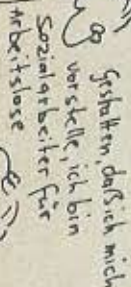 Gestatten, daß ich mich
vorstelle, ich bin
Sozialarbeiter für
Arbeitslose